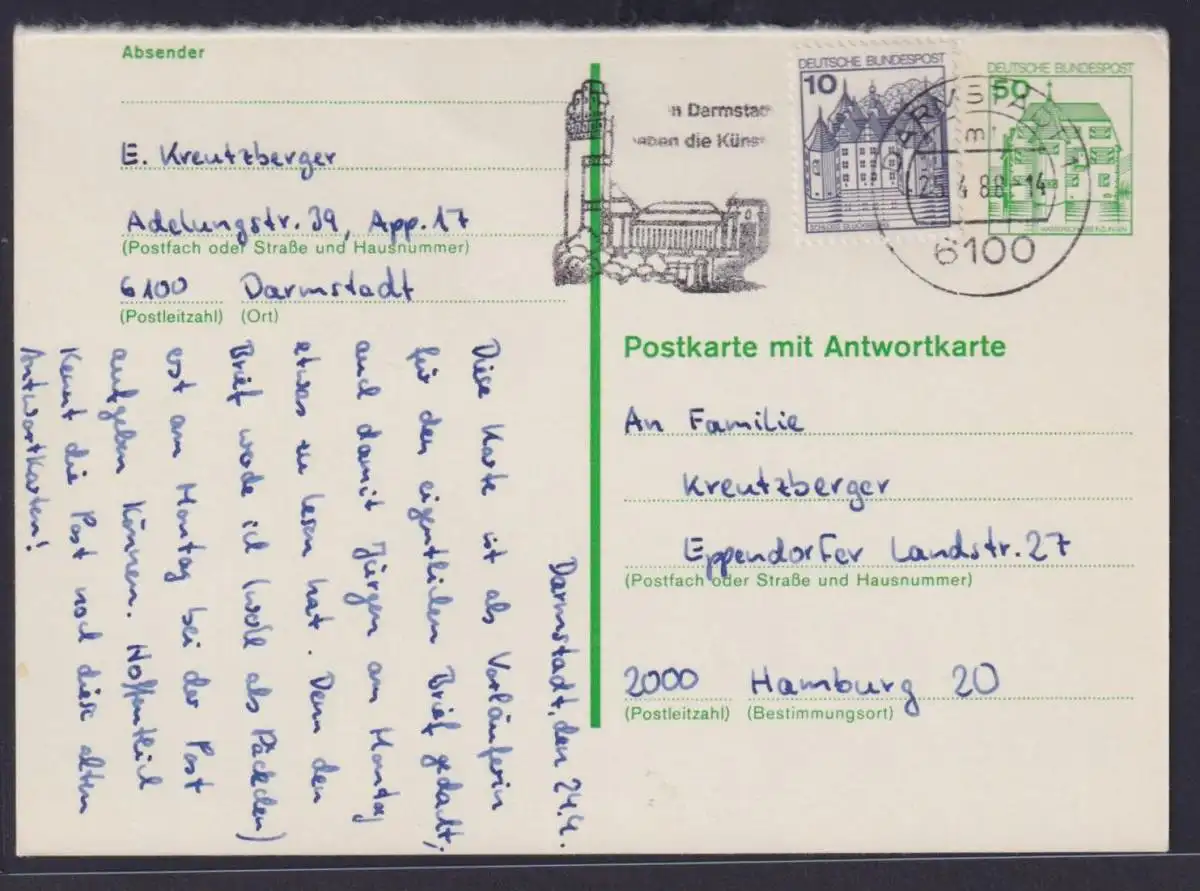 Absender
E. Kreutzberger
Adelungstr. 39, App. 17
(Postfach oder Straße und Hausnummer)
6100 Darmstadt
(Postleitzahl) (Ort)
Darmstadt, den 24.4.
Diese Karte ist als Vorläuferin
für den eigentlichen Brief gedacht,
auch damit Jürgen am Montag
etwas zu lesen hat. Denn den
Brief werde ich (wohl als Päckchen)
erst am Montag bei der Post
aufgeben können. Hoffentlich
kennt die Post noch diese alten
Antwortkarten!
n Darmstad
aben die Küns
DEUTSCHE BUNDESPOST
10
SCHLOSS GLÜCKSBURG
DEUTSCHE BUNDESPOST
50
WASSERSCHLOSS INZLINGEN
DARMSTADT 1
m
-14
6100
Postkarte mit Antwortkarte
An Familie
Kreutzberger
Eppendorfer Landstr. 27
(Postfach oder Straße und Hausnummer)
2000 Hamburg 20
(Postleitzahl) (Bestimmungsort)